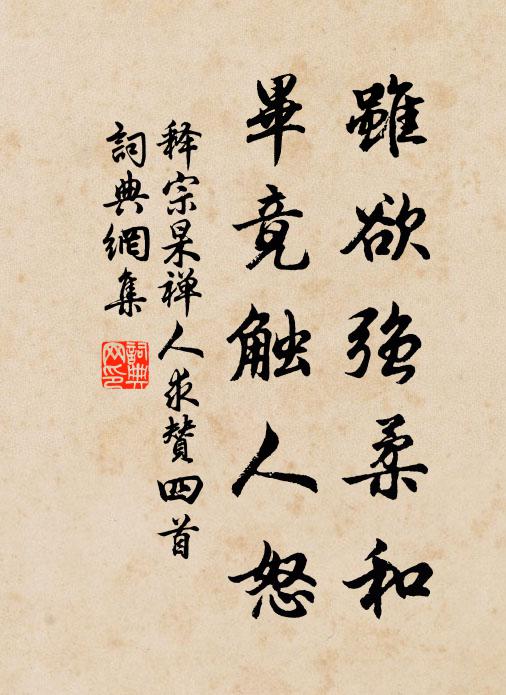 雖欲強柔和
畢竟触人怒
释宗杲禅人求贊四首
詞典網集
詞典网印